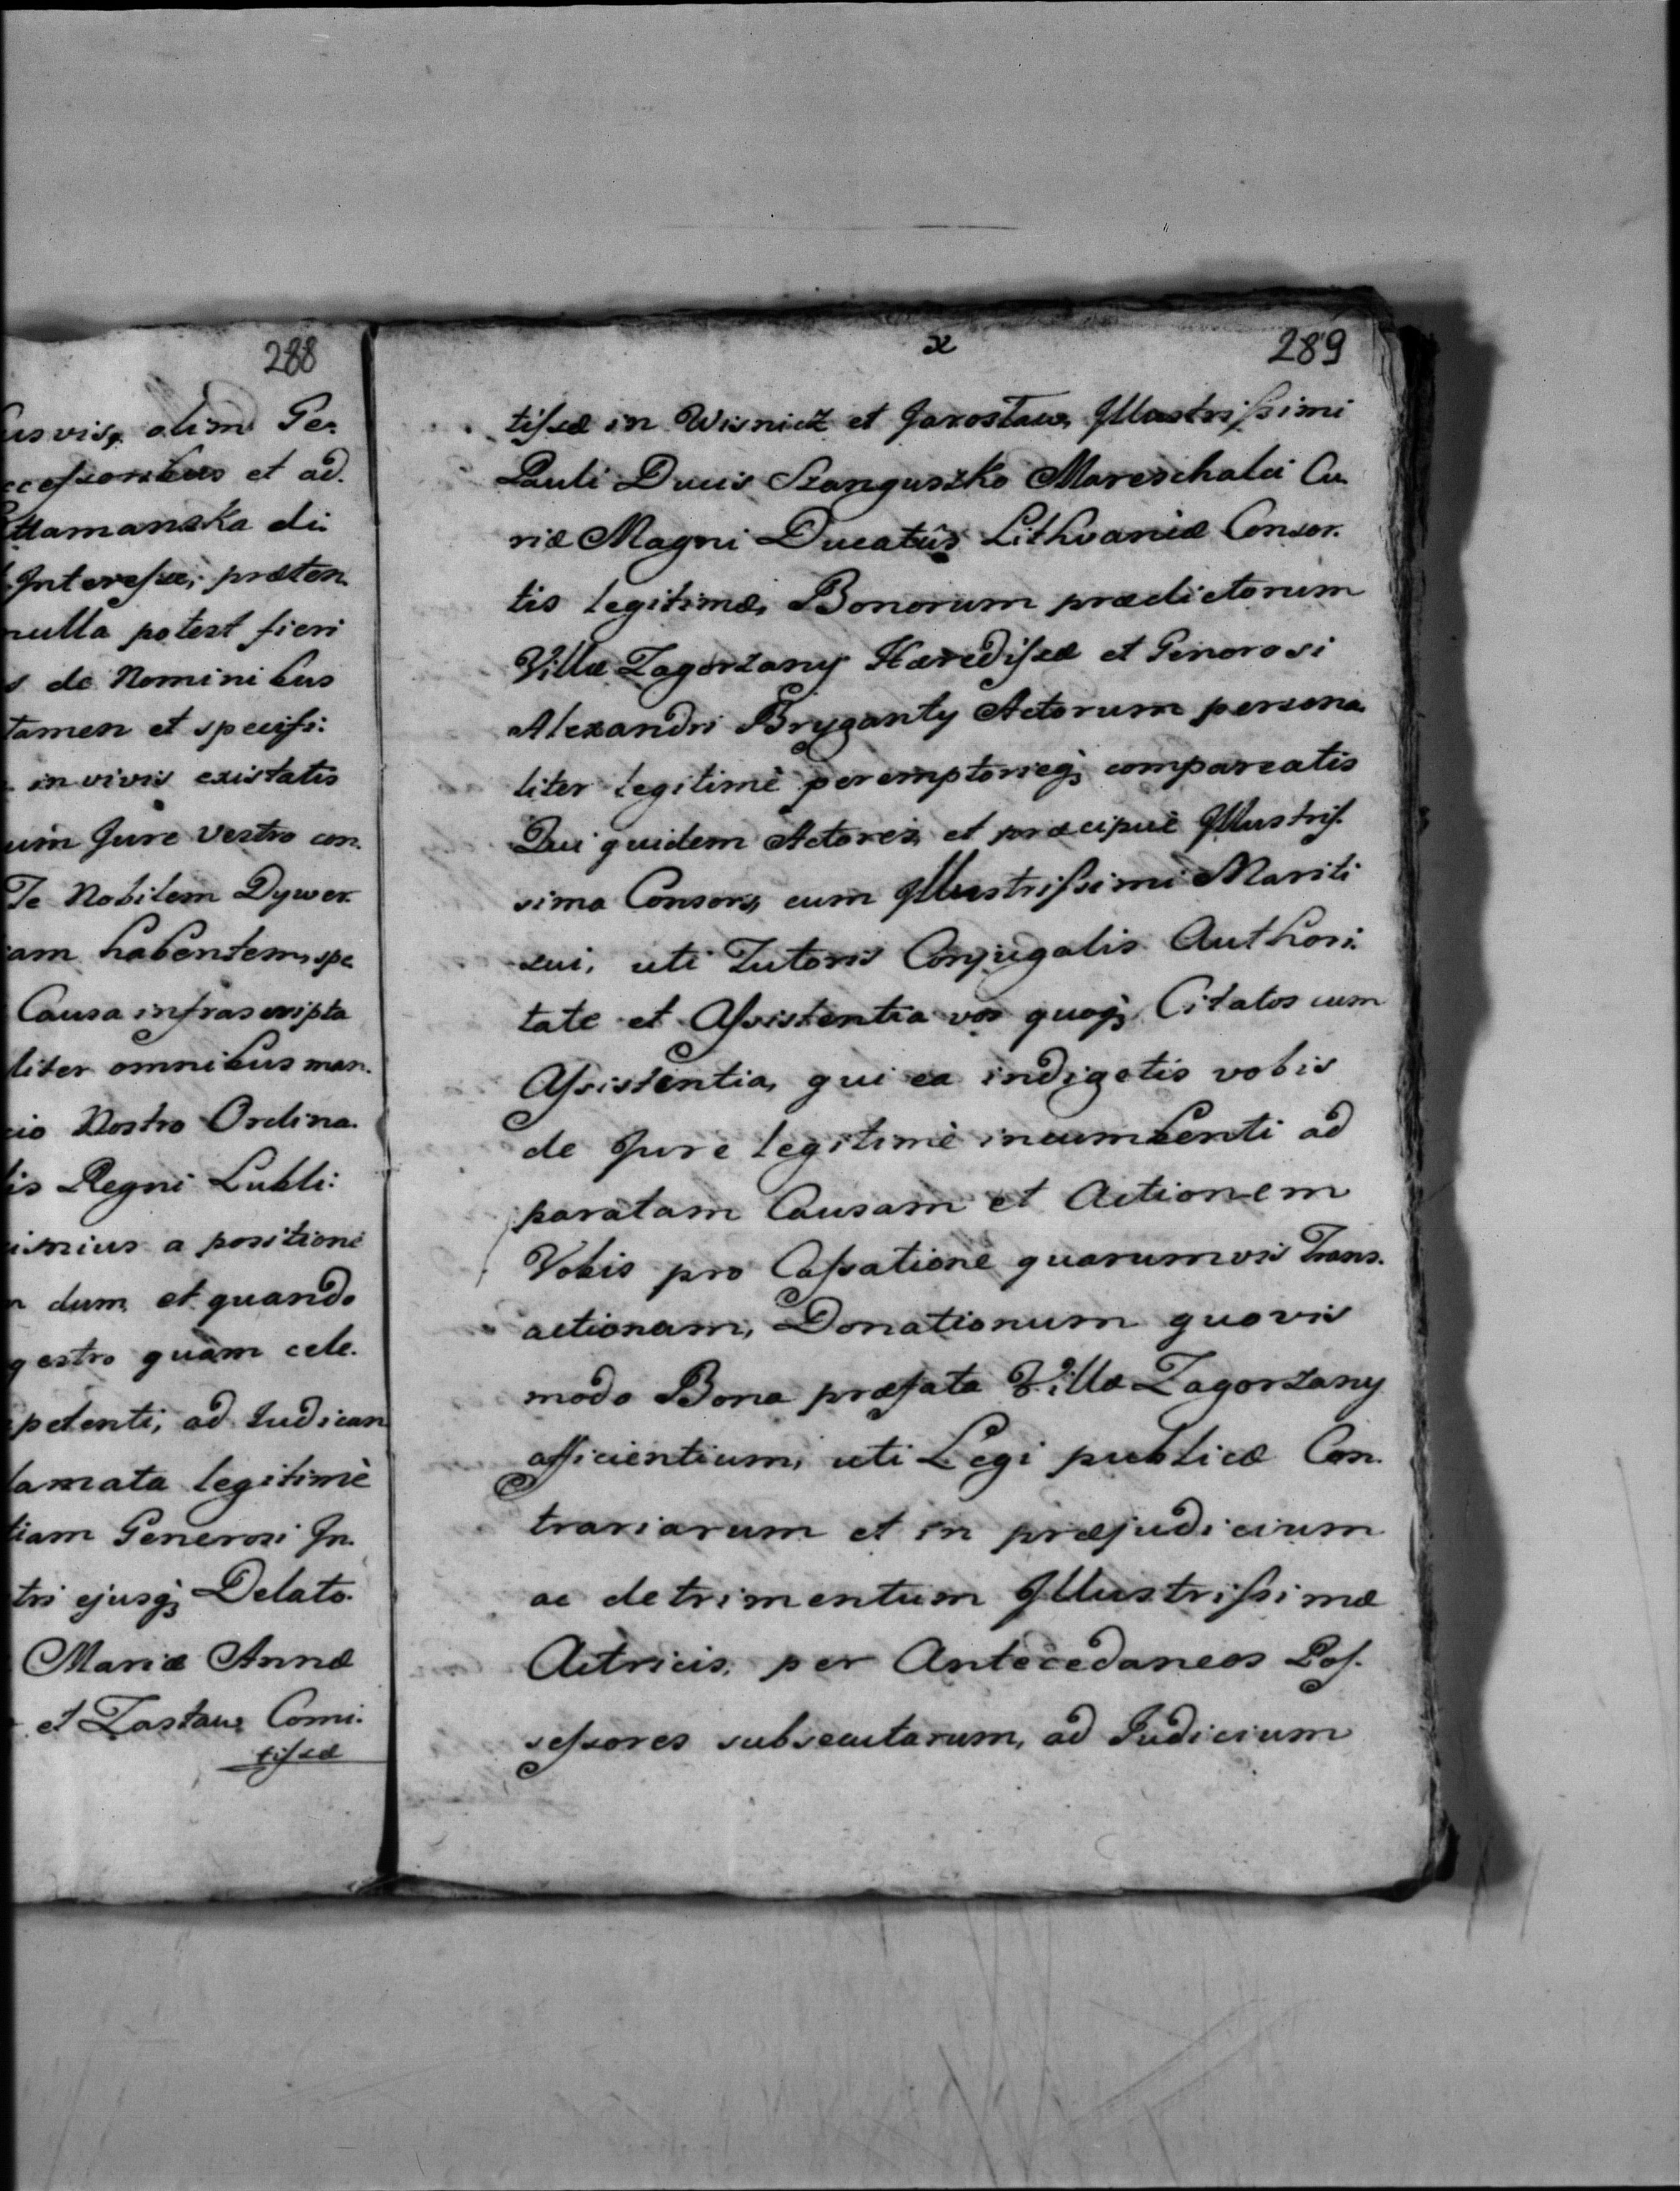 288
usvis, olim Ge-
ccessoribus et ad.
Kamanska di-
Interesse, præten.
nulla potest fieri
s de Nominibus
tamen et specifi:
in vivis existatis
um Jure Vestro con.
Te Nobilem Dywer.
iam habentem, spe
Causa infrascripta
liter omnibus man.
cio Nostro Ordina.
lis Regni Lubli:
ismius a positione
n dum et quando
gestro quàm cele.
petenti, ad Judican
lamata legitimè
tiam Generosi In.
tri ejusq; Delato.
Mariæ Annæ
et Zastaw, Comi.
tissæ
x 289
tissæ in Wisnicz et Jarosław, Illustrissimi
Pauli Ducis Szanguszko Mareschalci Cu.
riæ Magni Ducatûs Lithvaniæ Consor.
tis legitimæ, Bonorum prædictorum
Villæ Zagorzany Hæredissæ et Generosi
Alexandri Bryganty Actorum persona
liter legitimè peremptorieq; compareatis
Qui quidem Actores, et præcipuè Illustris.
sima Consors, cum Illustrissimi Mariti
sui, uti Tutoris Conjugalis Authori:
tate et Assistentia vos quoq; Citatos cum
Assistentia, qui ea indigetis vobis
de Jure legitimè incumbenti ad
paratam Causam et Actionem
Vobis pro Cassatione quarumvis Trans.
actionam, Donationum quovis
modo Bona præfata Villæ Zagorzany
afficientium, uti Legi publicæ Con.
trariarum et in præjudicium
ac detrimentum Illustrissimæ
Actricis, per Antecedaneos Pos.
sessores subsecutarum, ad Judicium